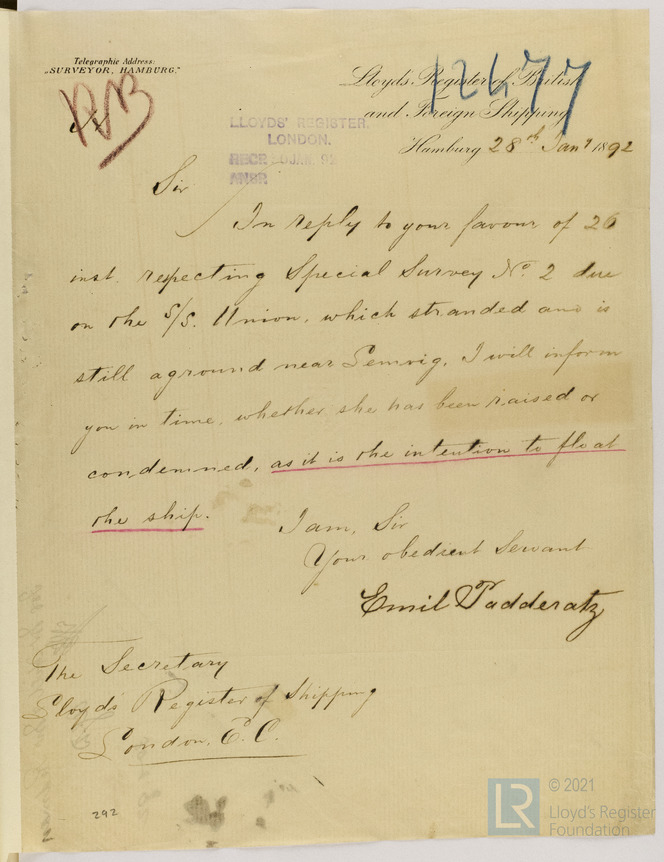 Telegraphic Address:
„SURVEYOR, HAMBURG."
12677
Lloyds Register of British
and Foreign Shipping
LLOYDS' REGISTER,
LONDON.
RECD 30 JAN. 92
ANSR
Hamburg 28th Jany 1892
Sir
In reply to your favour of 26
inst. respecting Special Survey No. 2 due
on the S/S. Union, which stranded and is
still aground near Lemvig, I will inform
you in time, whether she has been raised or
condemned, as it is the intention to float
the ship.
I am, Sir
Your obedient Servant
Emil Padderatz
The Secretary
Lloyd's Register of Shipping
London, E.C.
292
LR
© 2021
Lloyd's Register
Foundation